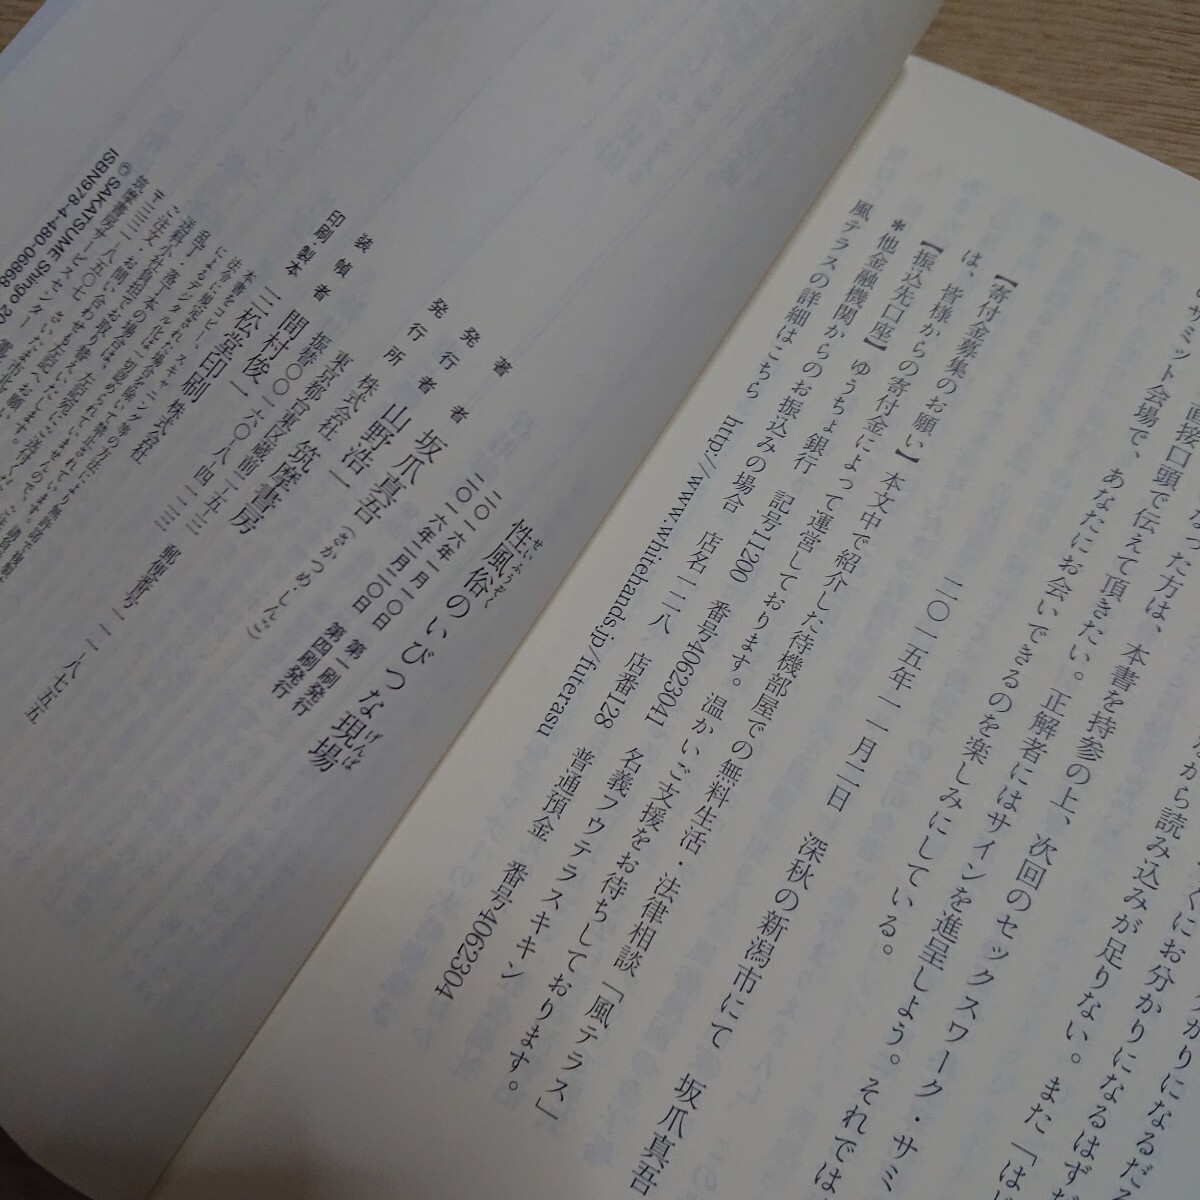 くにお分かりになるはず
から読み込みが足りない。また「は
った方は、本書を持参の上、次回のセックスワーク・サミ
直接口頭で伝えて頂きたい。正解者にはサインを進呈しよう。それでは
サミット会場で、あなたにお会いできるのを楽しみにしている。
二〇一五年一一月二日 深秋の新潟市にて 坂爪真吾
【寄付金募集のお願い】本文中で紹介した待機部屋での無料生活・法律相談「風テラス」
は、皆様からの寄付金によって運営しております。温かいご支援をお待ちしております。
【振込先口座】ゆうちょ銀行 記号11200 番号40623041 名義フウテラスキキン
*他金融機関からのお振込みの場合 店名一二八 店番128 普通預金 番号4062304
風テラスの詳細はこちら http://www.whitehands.jp/futerasu
性風俗のいびつな現場
せいふうぞく げんば
二〇一六年一月一〇日 第一刷発行
二〇一六年二月二〇日 第四刷発行
著者 坂爪真吾(さかつめ・しんご)
発行者 山野浩一
発行所 株式会社 筑摩書房
東京都台東区蔵前二-五-三 郵便番号一一一-八七五五
振替〇〇一六〇-八-四一二三
装幀者 間村俊一
印刷・製本 三松堂印刷 株式会社
本書をコピー、スキャニング等の方法により無許諾で複製
法令に規定された場合を除いて禁止されています。
によるデジタル化は一切認められていませんので、
乱丁・落丁本の場合は、左記宛に
送料小社負担でお取り替えいたします。
ご注文・お問い合わせも左記へお願いします。
筑摩書房サービスセンター
© SAKATSUME Shingo 20
ISBN978-4-480-06868